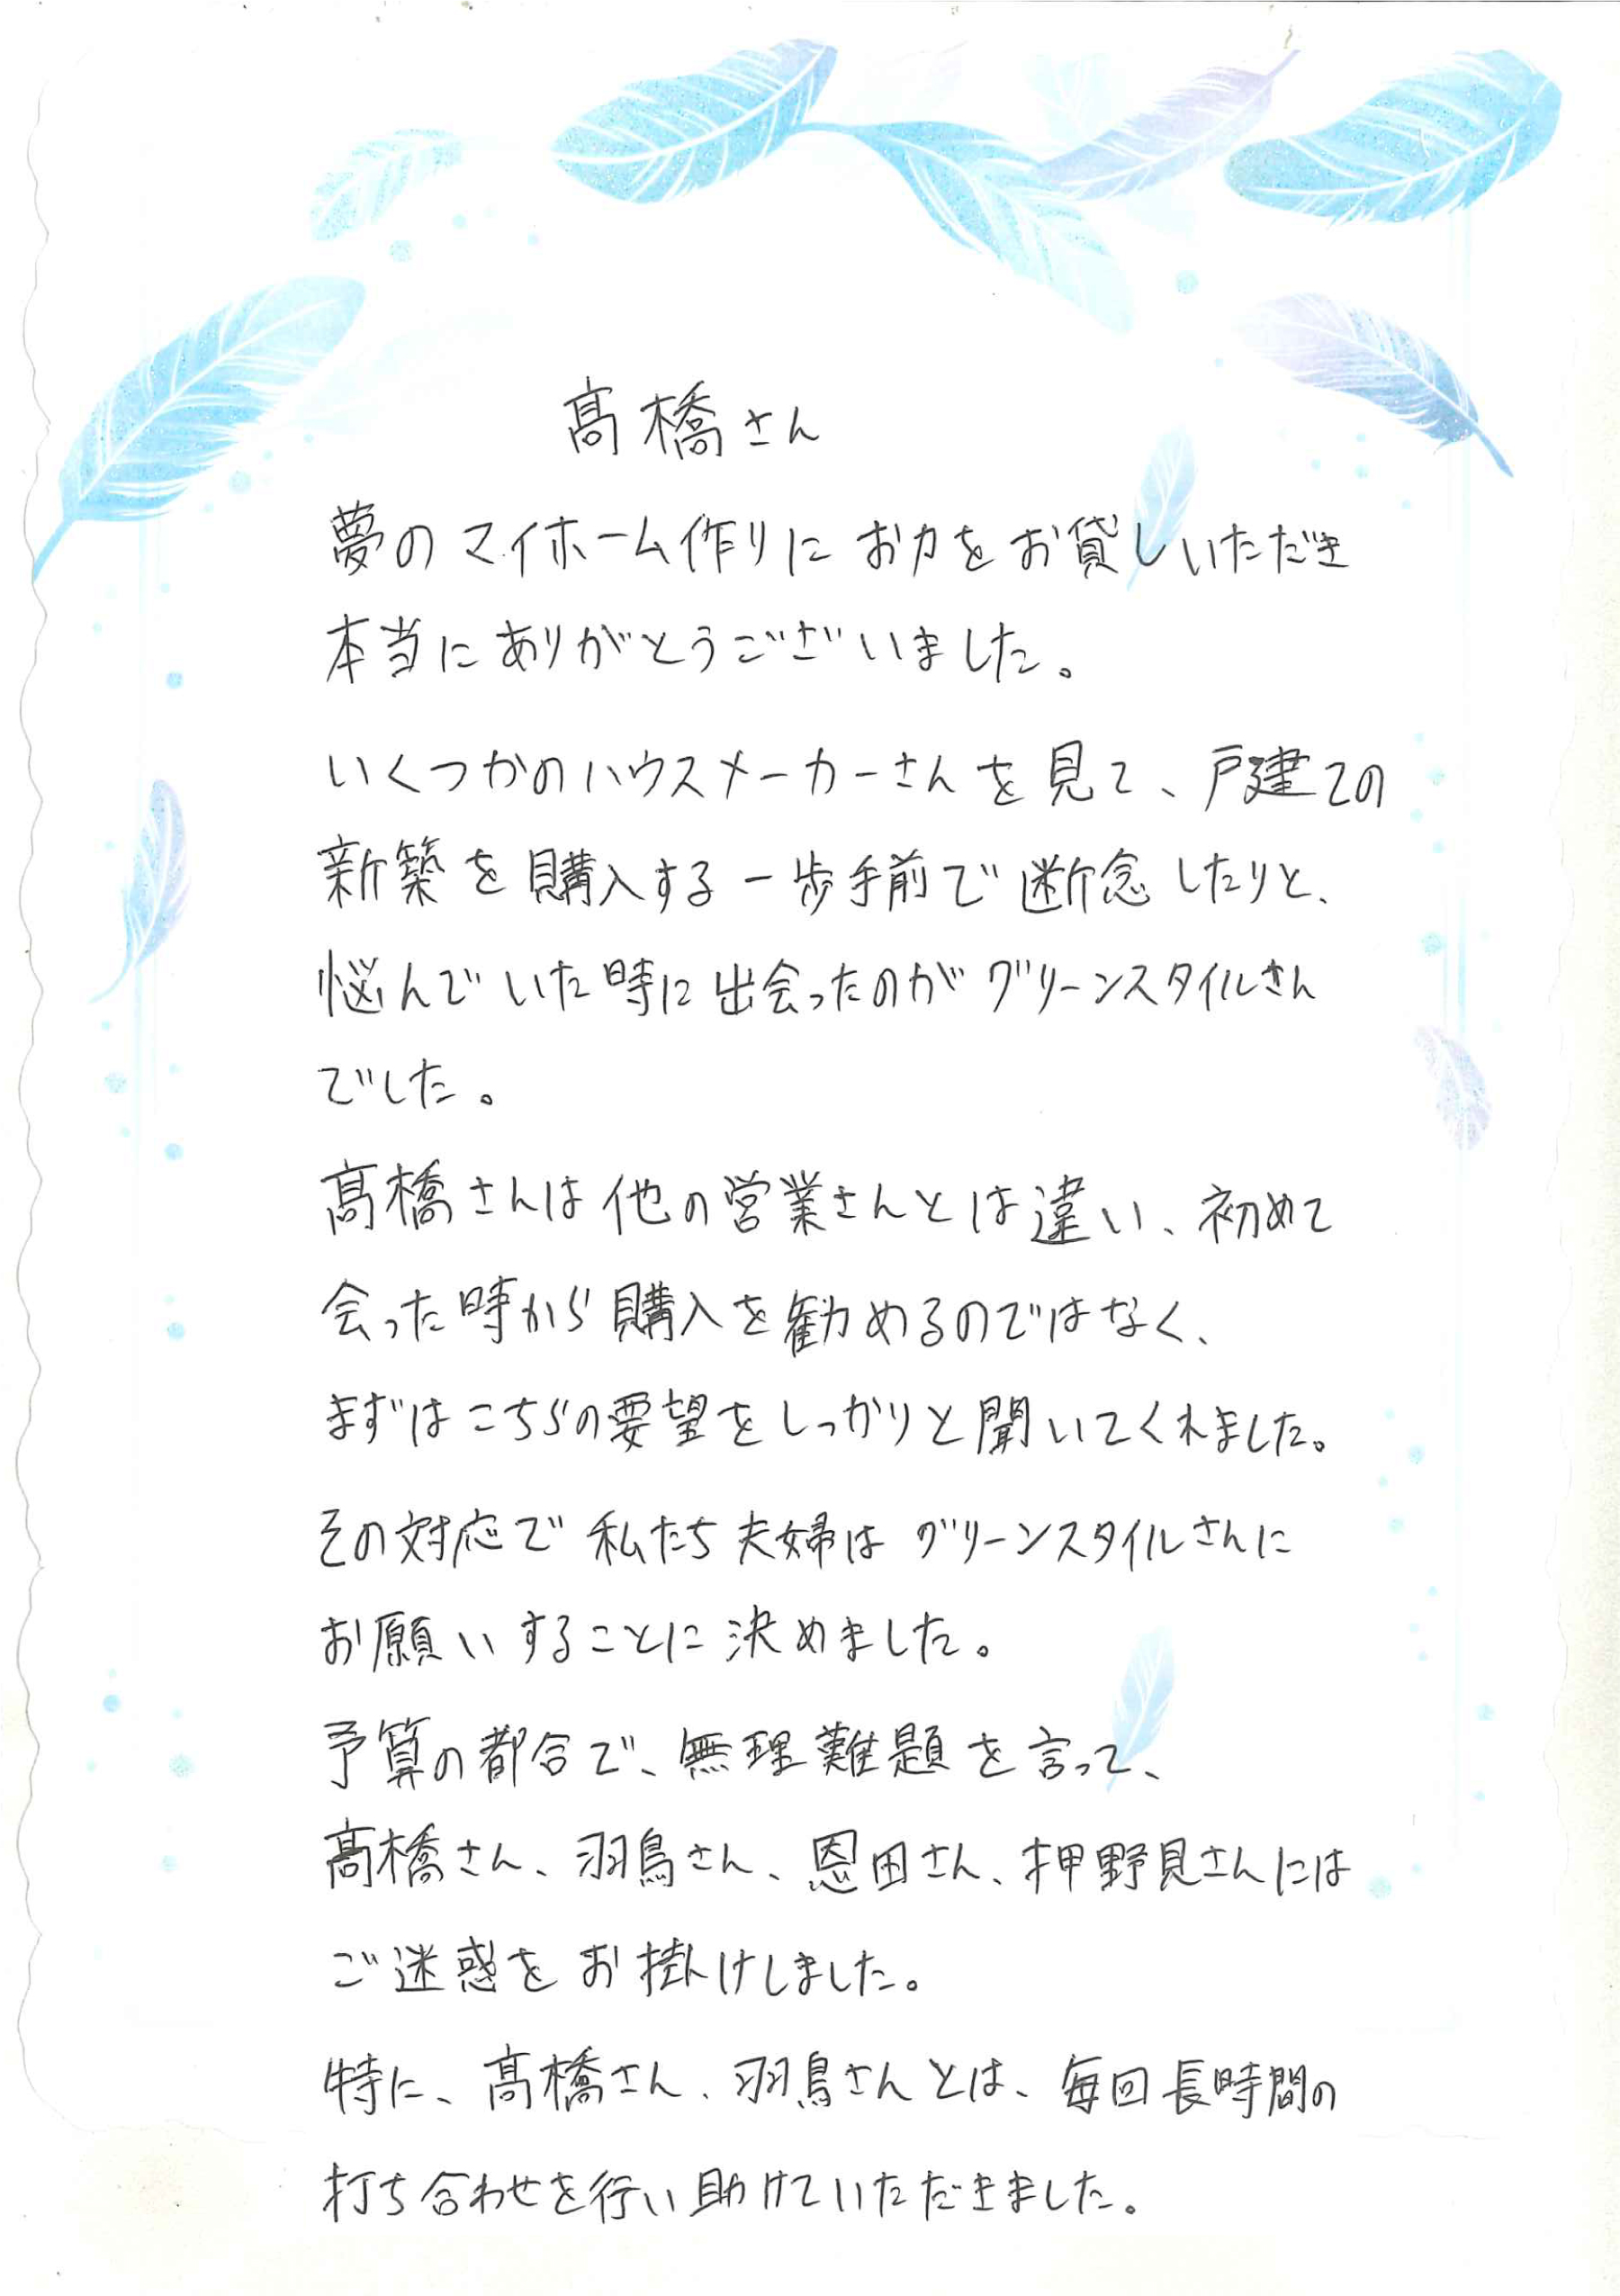 髙橋さん
夢のマイホーム作りにお力をお貸しいただき
本当にありがとうございました。
いくつかのハウスメーカーさんを見て、戸建ての
新築を購入する一歩手前で断念したりと、
悩んでいた時に出会ったのがグリーンスタイルさん
でした。
髙橋さんは他の営業さんとは違い、初めて
会った時から購入を勧めるのではなく、
まずはこちらの要望をしっかりと聞いてくれました。
その対応で私たち夫婦はグリーンスタイルさんに
お願いすることに決めました。
予算の都合で、無理難題を言って、
髙橋さん、羽鳥さん、恩田さん、押野見さんには
ご迷惑をお掛けしました。
特に、髙橋さん、羽鳥さんとは、毎回長時間の
打ち合わせを行い助けていただきました。